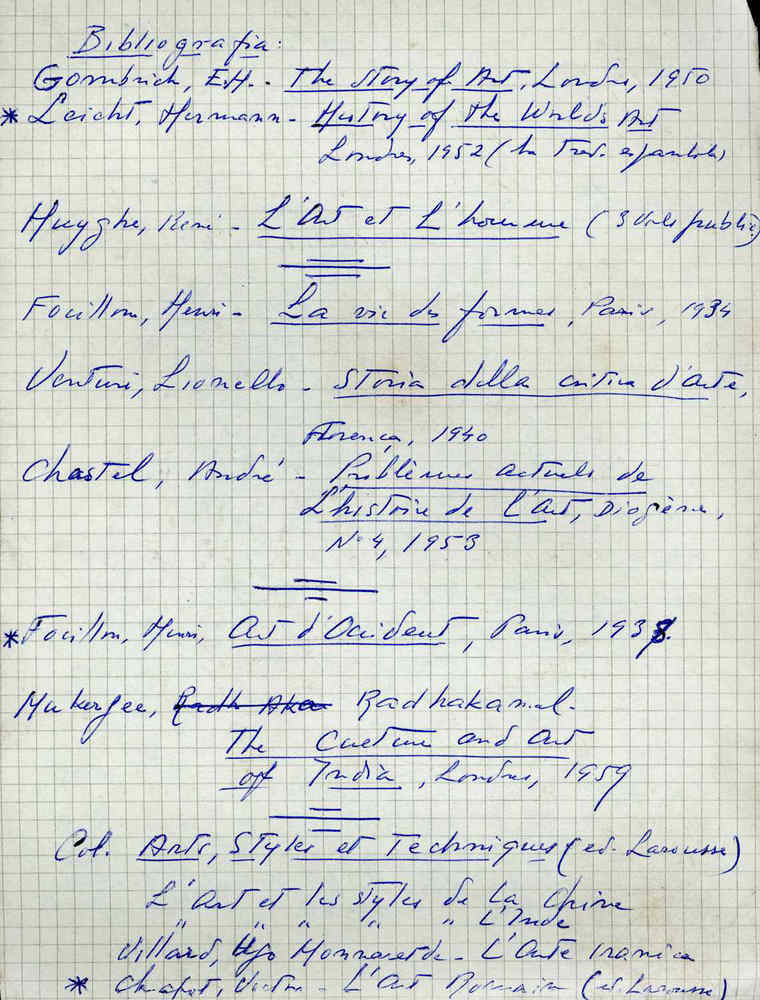 Bibliografia:
Gombrich, E.H. - The Story of Art, Londres, 1950
* Leicht, Hermann - History of the World's Art
Londres, 1952 (há trad. espanhola)
Huyghe, René - L'Art et L'homme (3 vols public.)
Focillon, Henri - La vie des formes, Paris, 1934
Venturi, Lionello - Storia della critica d'Arte,
Florença, 1940
Chastel, André - Problèmes actuels de
L'histoire de L'Art, Diogène,
Nº 4, 1953
* Focillon, Henri, Art d'Occident, Paris, 1938.
Mukerjee, Radhakamal -
The Culture and Art
of India, Londres, 1959
Col. Arts, Styles et Techniques (ed. Larousse)
L'Art et les styles de La Chine
" " " " " L'Inde
Villard, Ugo Monneret de - L'Arte Iranica
* Chapot, Victor - L'Art Romain (ed. Larousse)